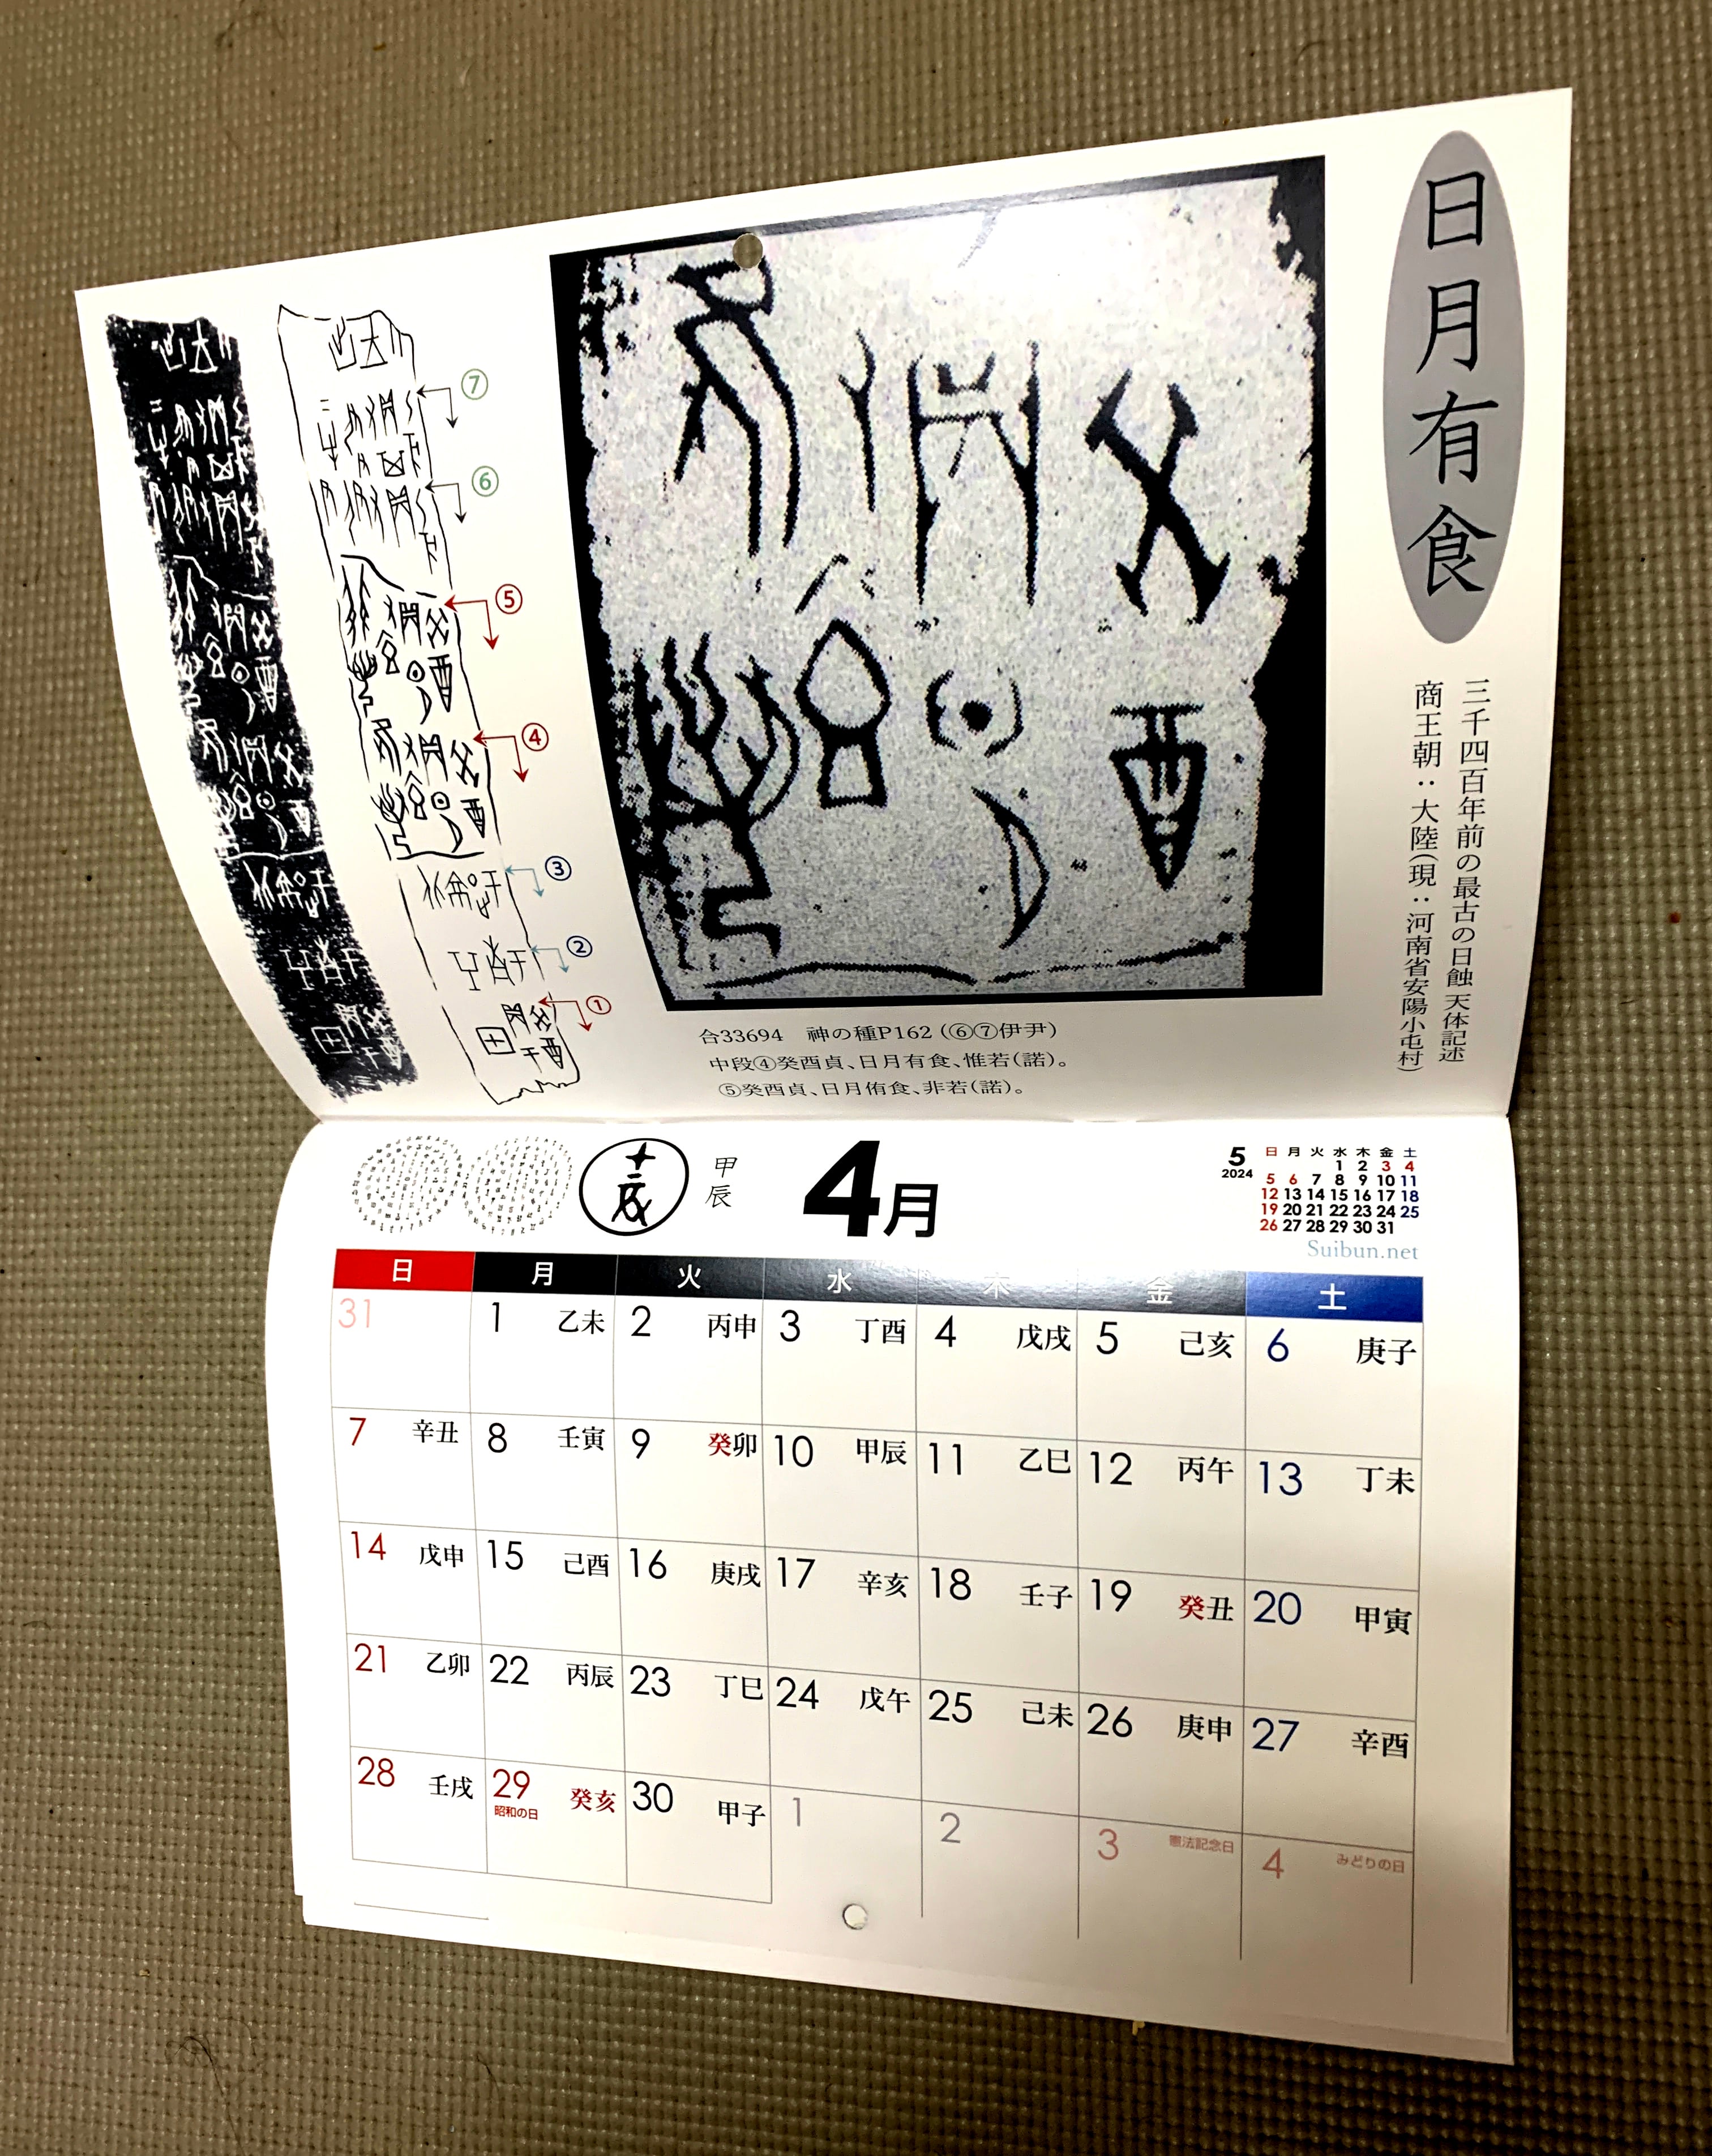 日月有食
三千四百年前の最古の日蝕 天体記述
商王朝：大陸(現：河南省安陽小屯村)
⑦
⑥
⑤
④
③
②
①
合33694 神の種P162 (⑥⑦伊尹)
中段④癸酉貞、日月有食、惟若(諾)。
⑤癸酉貞、日月侑食、非若(諾)。
甲辰
4月
5 2024
日 月 火 水 木 金 土
1 2 3 4
5 6 7 8 9 10 11
12 13 14 15 16 17 18
19 20 21 22 23 24 25
26 27 28 29 30 31
Suibun.net
日 月 火 水 木 金 土
31 1 乙未 2 丙申 3 丁酉 4 戊戌 5 己亥 6 庚子
7 辛丑 8 壬寅 9 癸卯 10 甲辰 11 乙巳 12 丙午 13 丁未
14 戊申 15 己酉 16 庚戌 17 辛亥 18 壬子 19 癸丑 20 甲寅
21 乙卯 22 丙辰 23 丁巳 24 戊午 25 己未 26 庚申 27 辛酉
28 壬戌 29 癸亥 30 甲子 1 2 3 憲法記念日 4 みどりの日
昭和の日